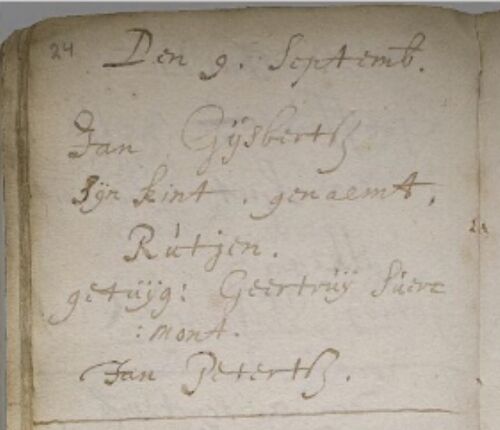 24
Den 9. Septemb.
Jan Gijsbertß
Zijn kint. genaemt,
Rùtjen.
getùijg: Geertrùij Sùere
: mont.
Jan Petertß.